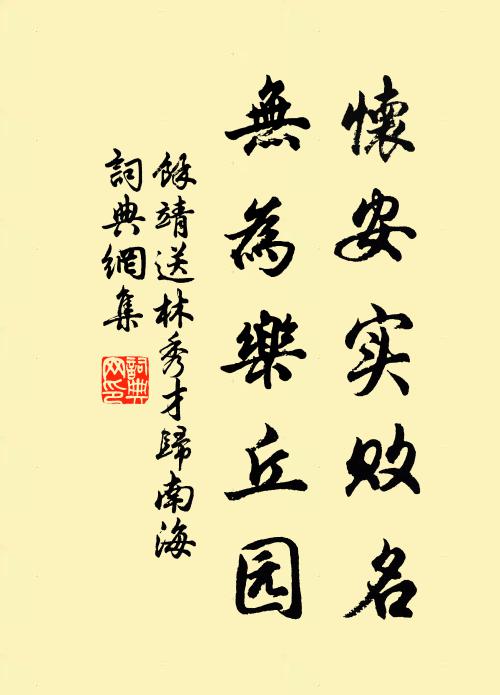 懷安实败名
無為樂丘园
餘靖送林秀才歸南海
詞典網集
詞典网印